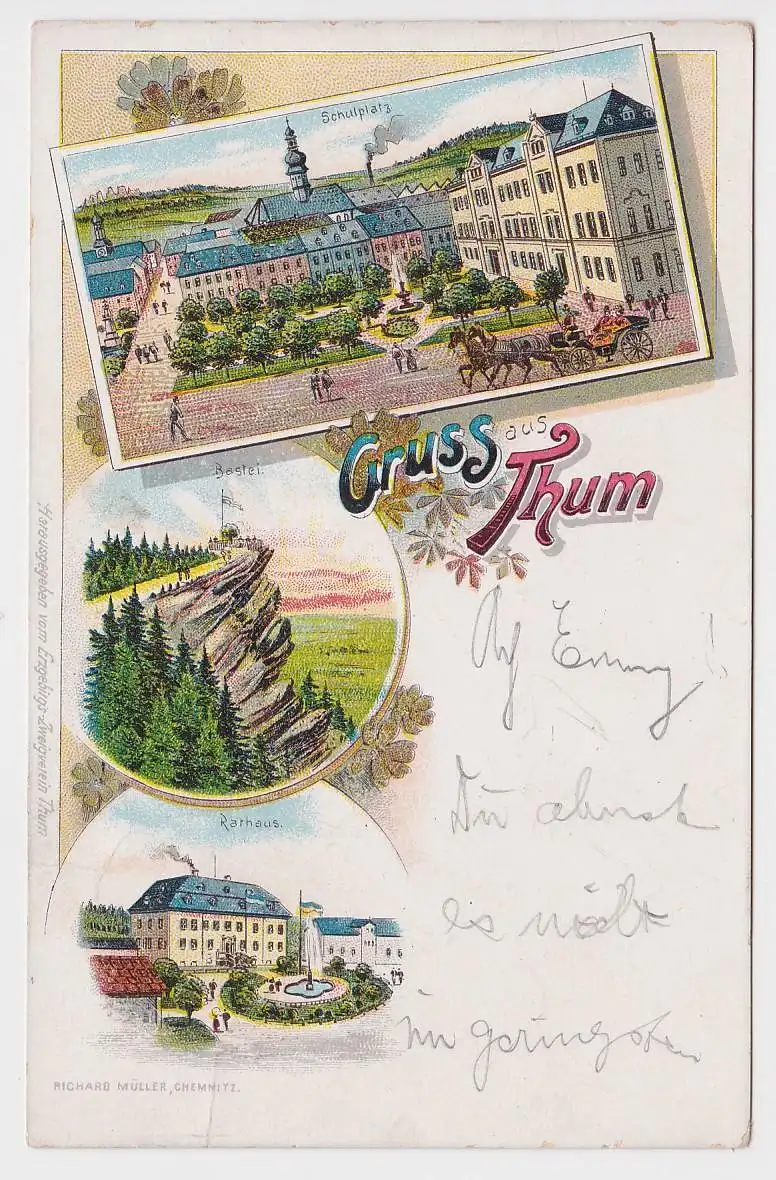 Schulplatz
Gruss aus
Thum
Bastei.
Herausgegeben vom Erzgebirgs-Zweigverein Thum
Rathaus.
Ach Emmy!
Du ahnst
es nicht
im geringsten
RICHARD MÜLLER, CHEMNITZ.